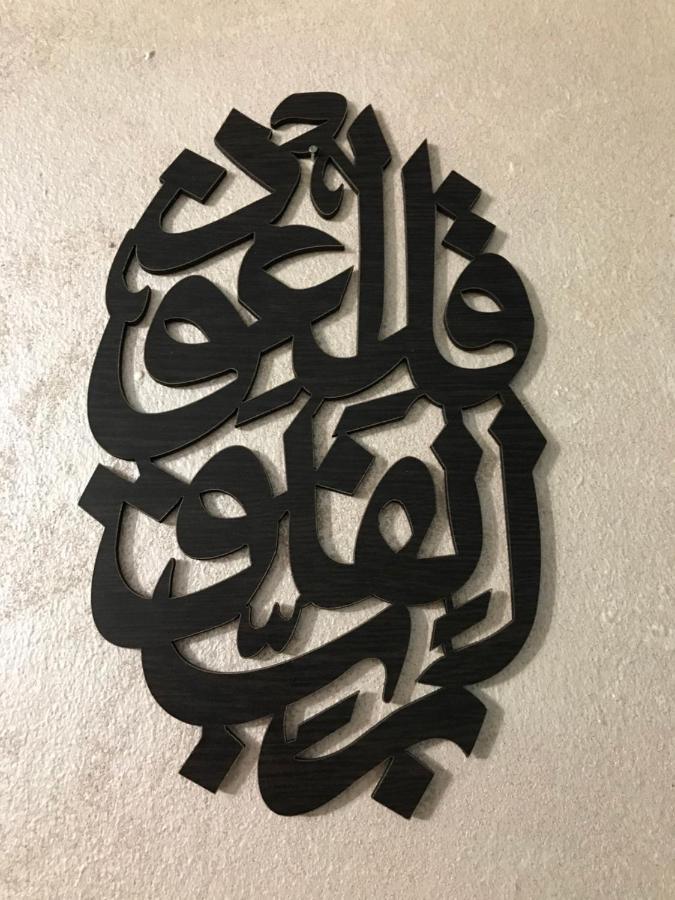 قل اعوذ
برب الفلق